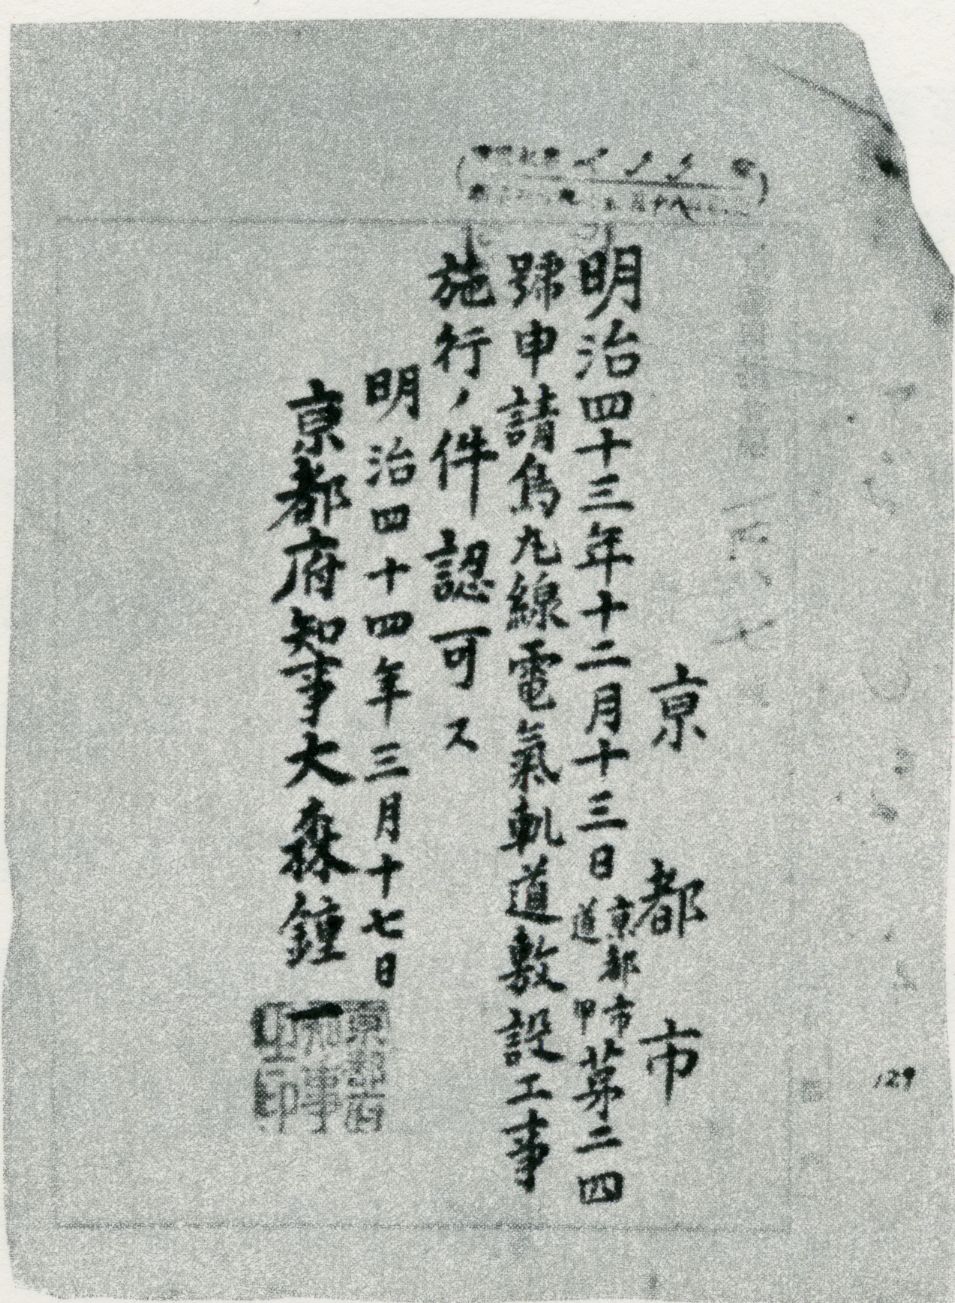 京都市
明治四十三年十二月十三日京都市道甲第二四
號申請烏丸線電氣軌道敷設工事
施行ノ件認可ス
明治四十四年三月十七日
京都府知事大森鍾一
京都府
知事
之印
129